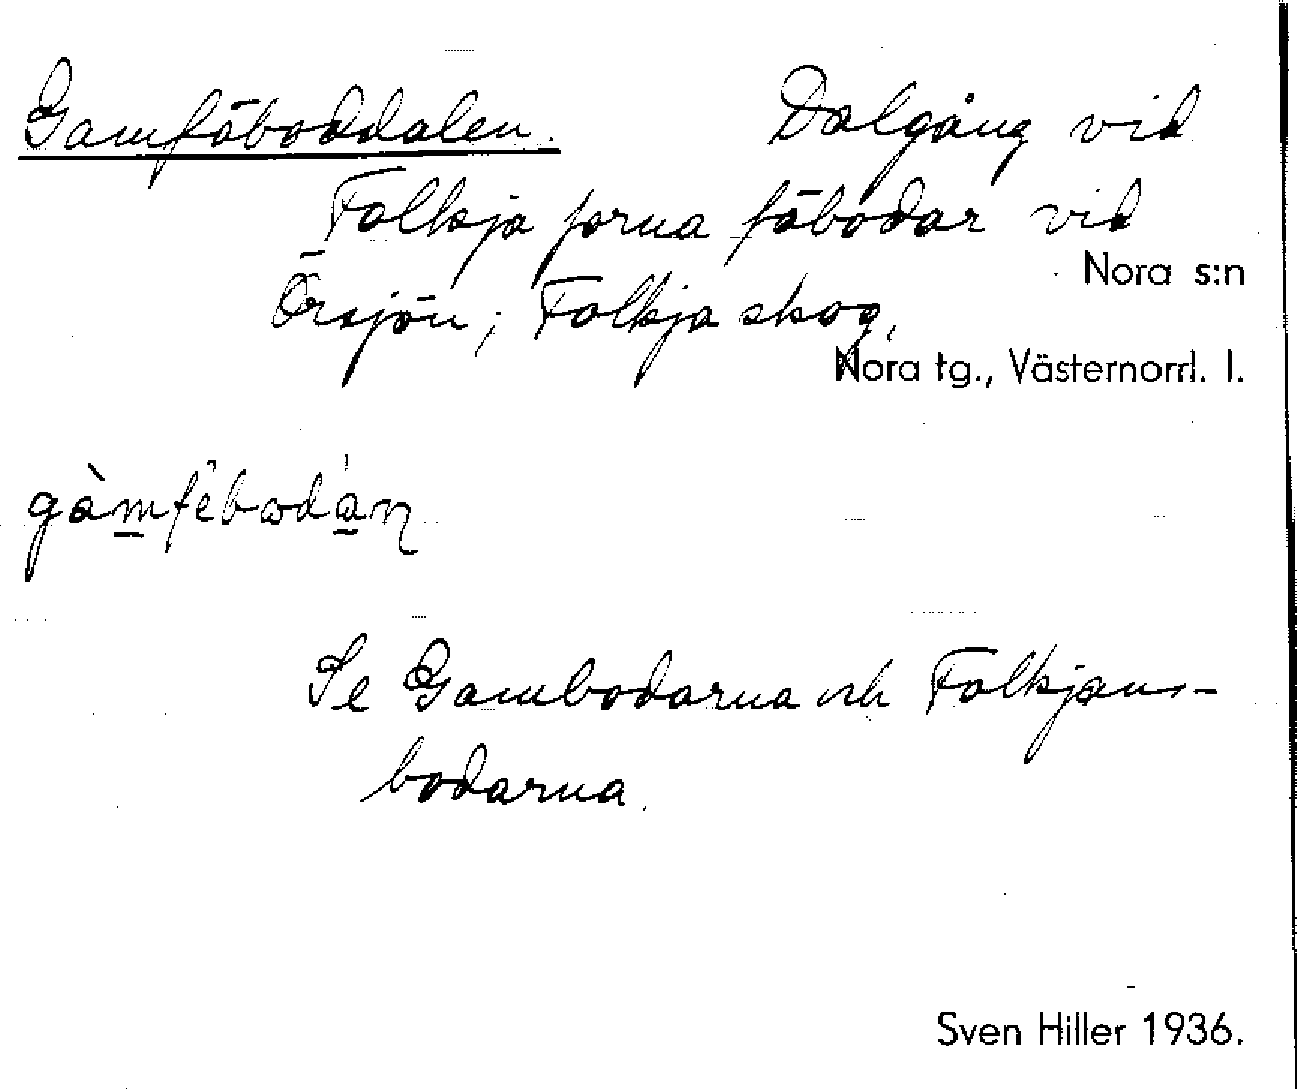 Gamfäboddalen. Dalgång vid
Folkja forna fäbodar vid
Nora s:n
Örsjön; Folkja skog,
Nora tg., Västernorrl. l.
gàmfèbodán
Se Gambodarna och Folkjans-
bodarna.
Sven Hiller 1936.